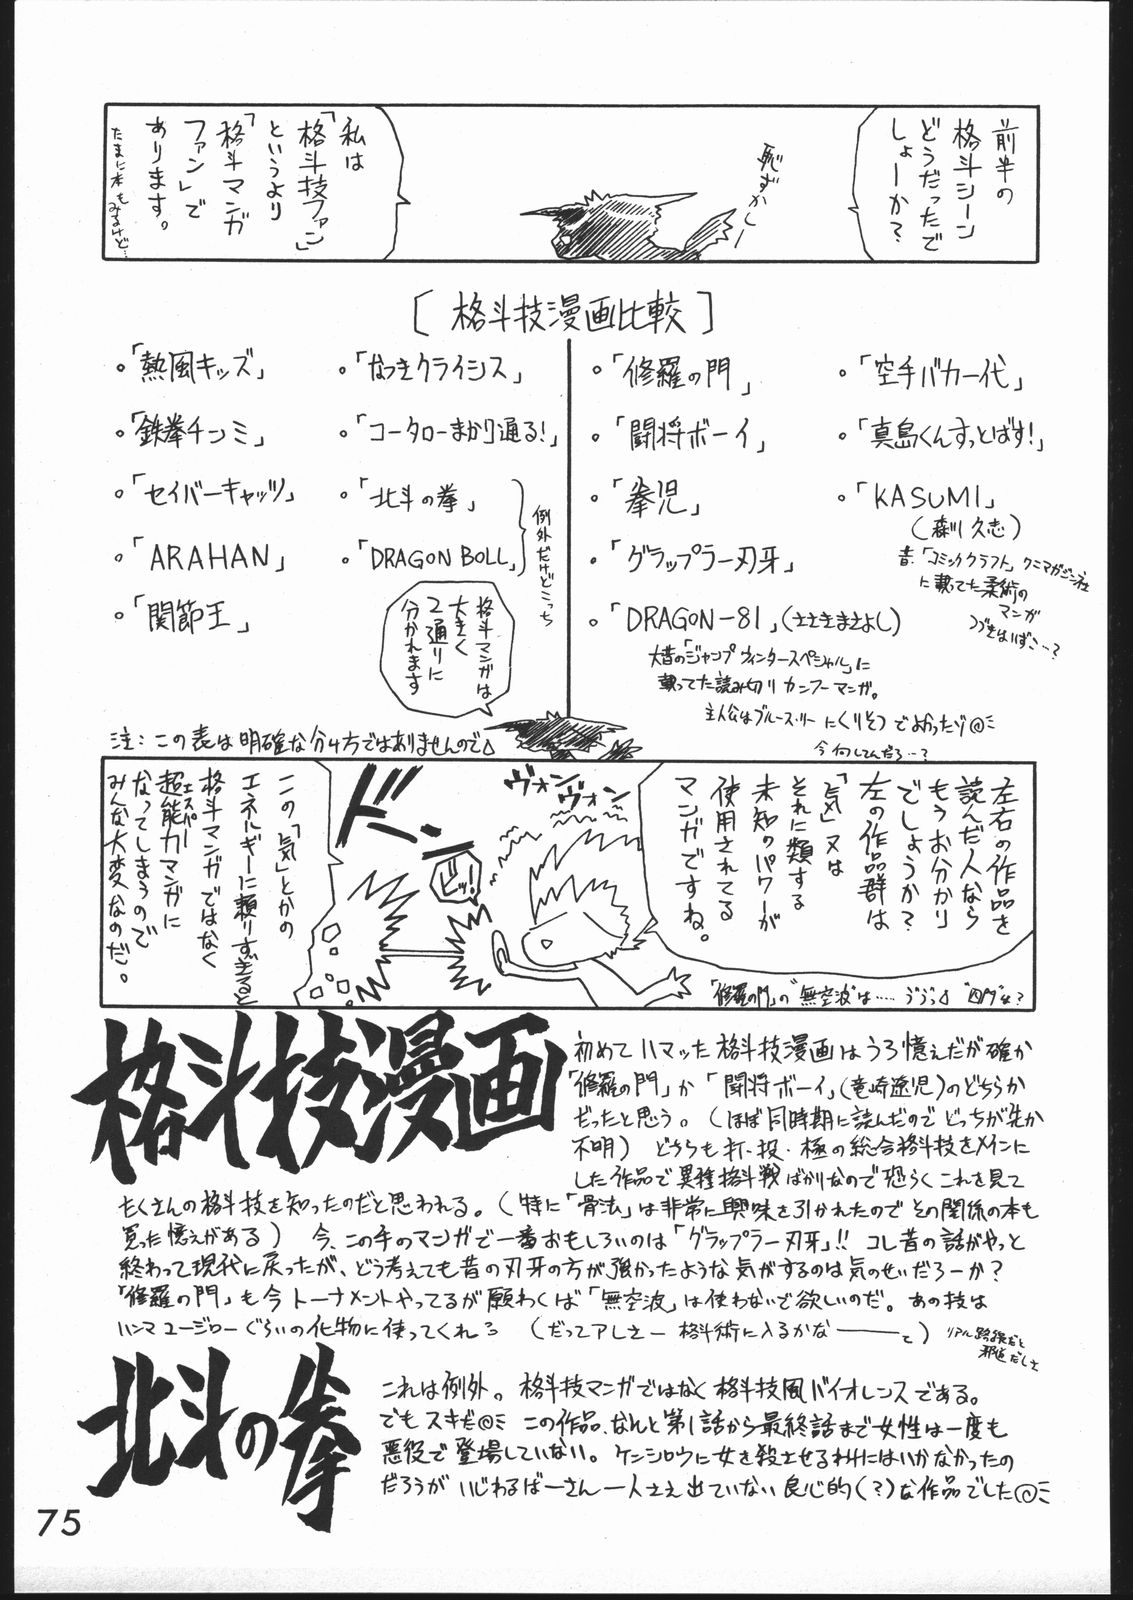 前半の
格斗シーン
どうだったで
しょーか?
恥ずかしー
私は
「格斗技ファン」
というより
「格斗マンガ
ファン」で
あります。
たまに本もみるけど…
[格斗技漫画比較]
。「修羅の門」
。「空手バカ一代」
。「闘将ボーイ」
。「真島くんすっとばす!」
。「拳児」
。「KASUMI」
(森川久志)
昔、「コミッククラフト」クニマガジン社
に載ってた柔術の
マンガ
つづきはいずこ…?
。「グラップラー刃牙」
。「DRAGON-81」(ささきまさよし)
大昔の「ジャンプウィンタースペシャル」に
載ってた読み切りカンフーマンガ。
主人公はブルース・リーにくりそつでよかったゾ@ミ
今何してんだろ…?
。「熱風キッズ」
。「なつきクライシス」
。「鉄拳チンミ」
。「コータローまかり通る!」
。「セイバーキャッツ」
。「北斗の拳」
。「ARAHAN」
。「DRAGON BOLL」
例外だけどこっち
。「関節王」
格斗マンガは
大きく
2通りに
分かれます
注:この表は明確な分け方ではありませんので
左右の作品を
読んだ人なら
もうお分かり
でしょうか?
左の作品群は
「気」又は
それに類する
未知のパワーが
使用されてる
マンガですね。
「修羅の門」の"無空波"は……
ヴォン
ヴォン
ビッ!
ドン
この「気」とかの
エネルギーに頼りすぎると
格斗マンガではなく
超能力マンガに
エスパー
なってしまうので
みんな大変なのだ。
格斗技漫画
初めてハマッた格斗技漫画はうろ憶えだが確か
「修羅の門」か「闘将ボーイ」(竜崎遼児)のどちらか
だったと思う。(ほぼ同時期に読んだのでどっちが先か
不明)どちらも打・投・極の総合格斗技をメインに
した作品で異種格斗戦ばかりなので恐らくこれを見て
たくさんの格斗技を知ったのだと思われる。(特に「骨法」は非常に興味を引かれたのでその関係の本も
買った憶えがある)今、この手のマンガで一番おもしろいのは「グラップラー刃牙」!!コレ昔の話がやっと
終わって現代に戻ったが、どう考えても昔の刃牙の方が強かったような気がするのは気のせいだろーか?
「修羅の門」も今トーナメントやってるが願わくば「無空波」は使わないで欲しいのだ。あの技は
ハンマユージローぐらいの化物に使ってくれろ(だってアレさー格斗術に入るかな――て)
リアル路線だと
邪道だしさ
北斗の拳
これは例外。格斗技マンガではなく格斗技風バイオレンスである。
でもスキだ@ミこの作品、なんと第1話から最終話まで女性は一度も
悪役で登場していない。ケンシロウに女を殺させるわけにはいかなかったの
だろうがいじわるばーさん一人さえ出ていない良心的(?)な作品でした@ミ
75